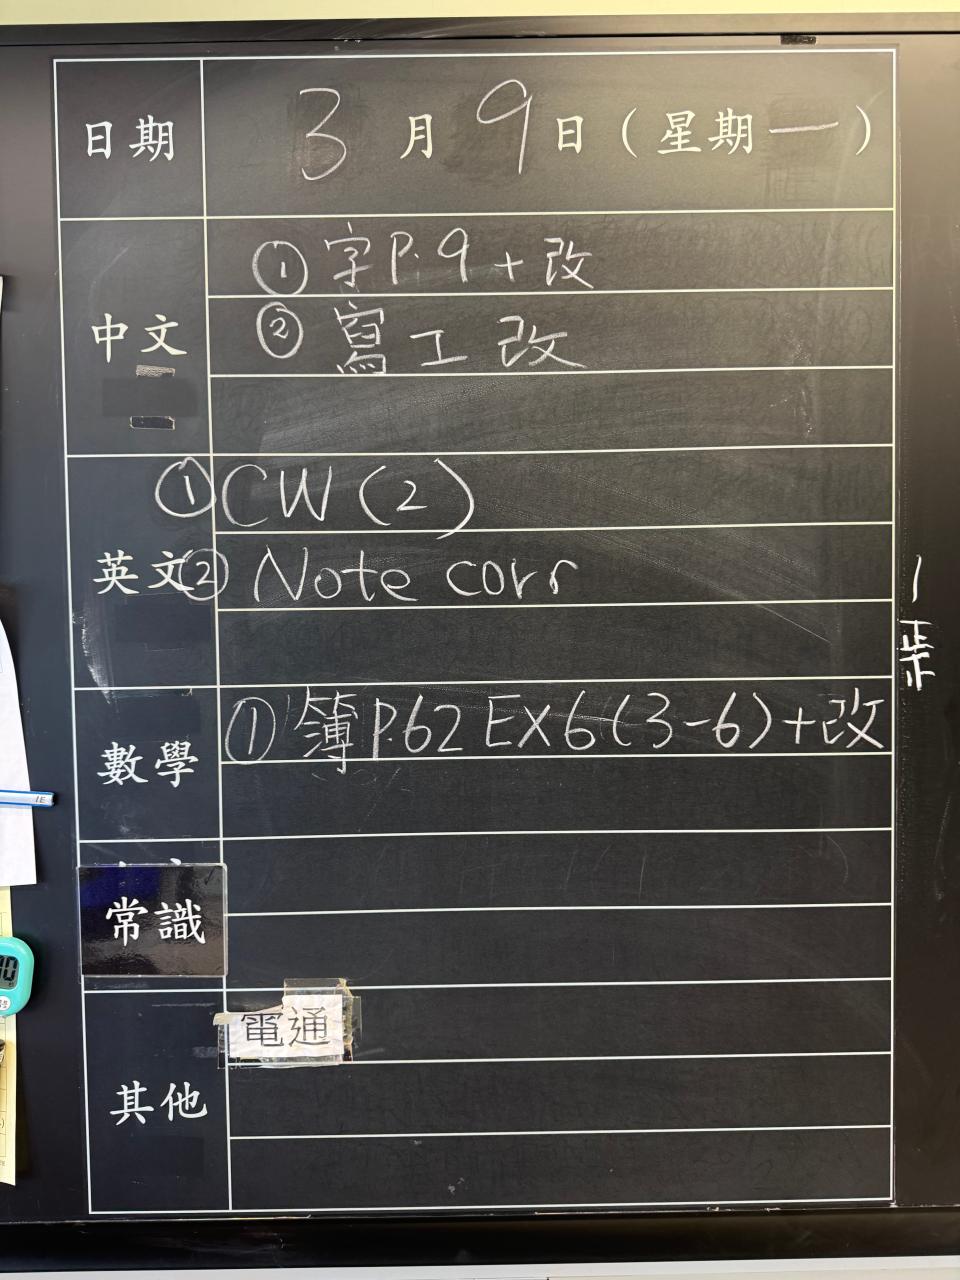 日期 3月9日(星期一)
中文
① 字P.9+改
② 寫工改
英文
① CW (2)
② Note corr
數學
① 簿P.62 EX6(3-6)+改
常識
其他
電通